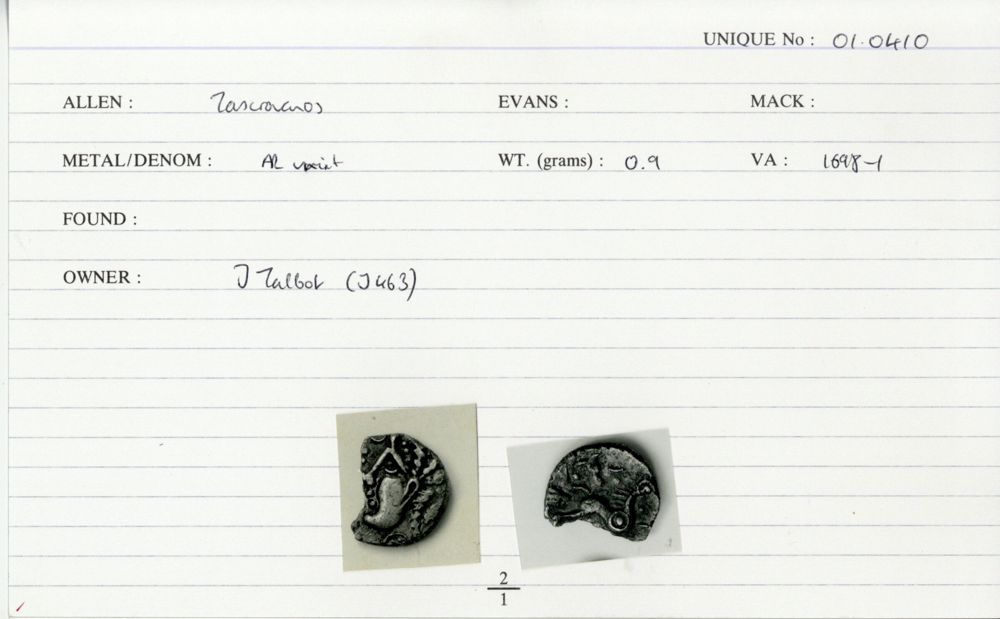 UNIQUE No : 01.0410
ALLEN : Tasciovanos EVANS : MACK :
METAL/DENOM : AR unit WT. (grams) : 0.9 VA : 1698-1
FOUND :
OWNER : J Talbot (J463)
2
1